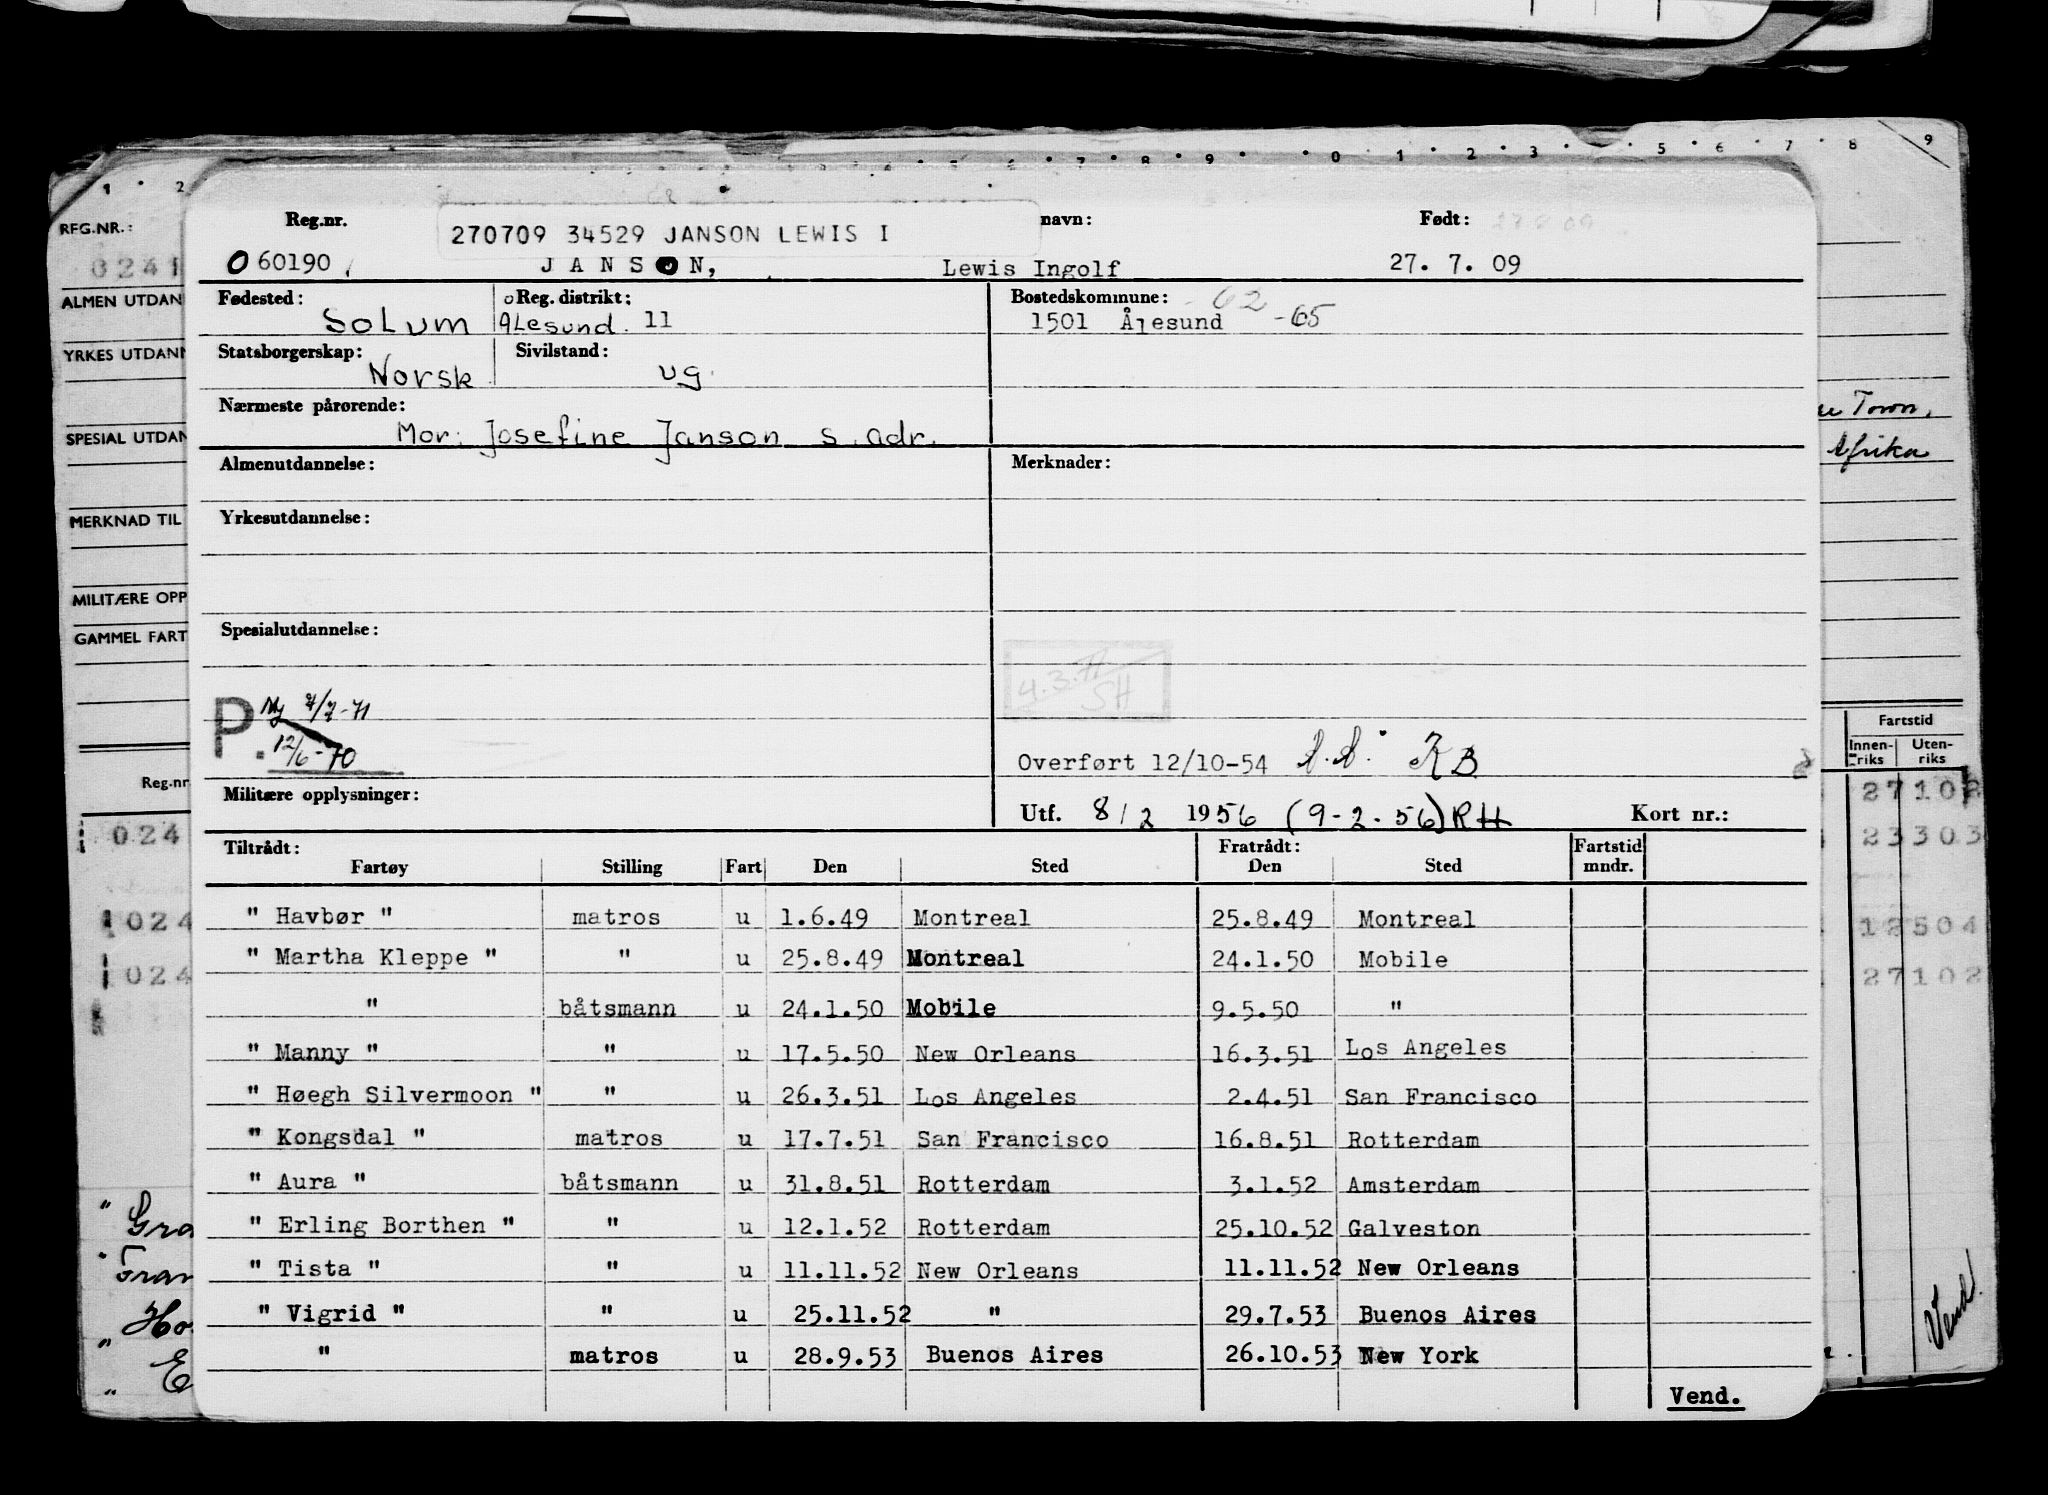 1 2 4 5 6 7 8 9 0 1 2 3 5 6 7 8 9
REG.NR.:
0241
ALMEN UTDAN
YRKES UTDANN
SPESIAL UTDAN
MERKNAD TIL
MILITÆRE OPP
GAMMEL FART
Reg.nr
024
024
024
Reg.nr. navn: Født:
270709 34529 JANSON LEWIS I
060190 JANSON, Lewis Ingolf 27. 7. 09
Fødested: Reg. distrikt: Bostedskommune: 62
Solum Ålesund. 11 1501 Ålesund -65
Statsborgerskap: Sivilstand:
Norsk ug.
Nærmeste pårørende:
Mor: Josefine Janson s. adr.
Almenutdannelse: Merknader:
Yrkesutdannelse:
Spesialutdannelse:
4.3.71
SH
P. Ny 7/7-71
12/6-70
Overført 12/10-54 KB
Militære opplysninger: Utf. 8/2 1956 (9-2-56) RH Kort nr.:
Tiltrådt: Fratrådt: Fartstid
Fartøy Stilling Fart Den Sted Den Sted mndr.
" Havbør " matros u 1.6.49 Montreal 25.8.49 Montreal
" Martha Kleppe " " u 25.8.49 Montreal 24.1.50 Mobile
" båtsmann u 24.1.50 Mobile 9.5.50 "
" Manny " " u 17.5.50 New Orleans 16.3.51 Los Angeles
" Høegh Silvermoon " " u 26.3.51 Los Angeles 2.4.51 San Francisco
" Kongsdal " matros u 17.7.51 San Francisco 16.8.51 Rotterdam
" Aura " båtsmann u 31.8.51 Rotterdam 3.1.52 Amsterdam
" Erling Borthen " " u 12.1.52 Rotterdam 25.10.52 Galveston
" Tista " " u 11.11.52 New Orleans 11.11.52 New Orleans
" Vigrid " " u 25.11.52 " 29.7.53 Buenos Aires
" matros u 28.9.53 Buenos Aires 26.10.53 New York
Vend.
Town,
Afrika
Fartstid
Innen-riks Uten-riks
27102
23303
12504
27102
Vend!